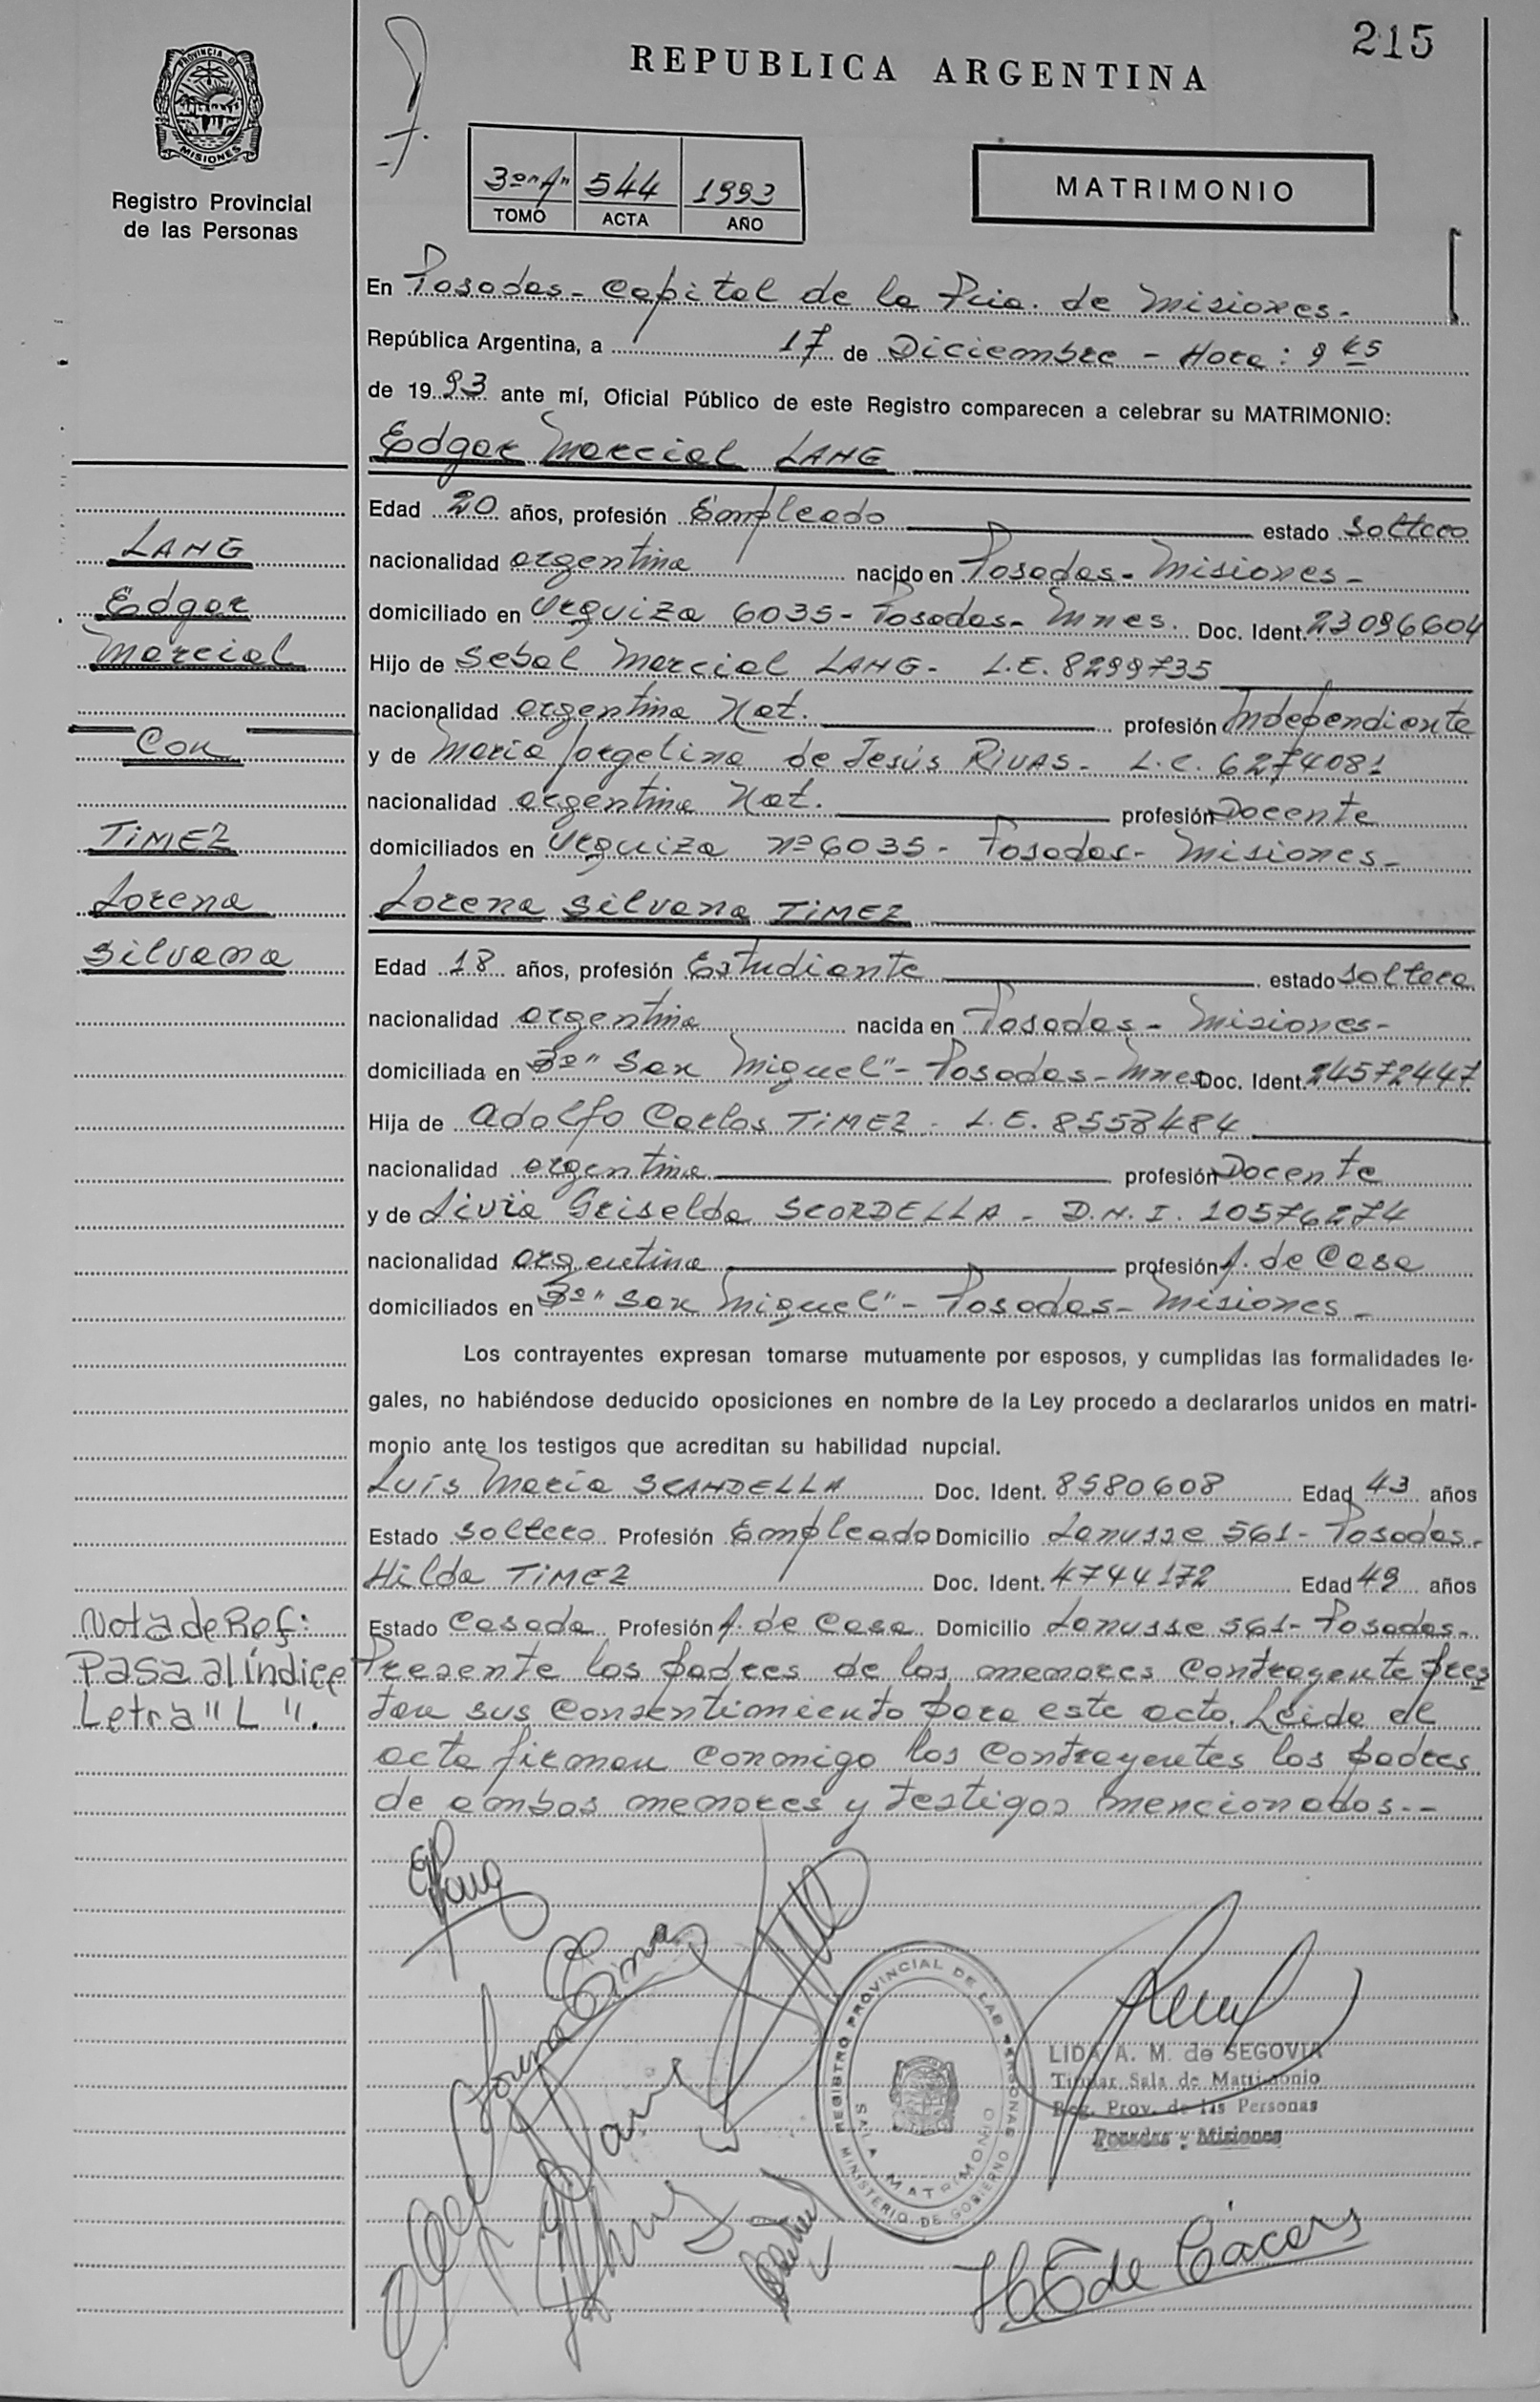 215
REPUBLICA ARGENTINA
PROVINCIA DE
MISIONES
Registro Provincial
de las Personas
3º "A" 544 1993
TOMO ACTA AÑO
MATRIMONIO
En Posadas - Capital de la Pcia. de Misiones -
República Argentina, a 17 de Diciembre - Hora: 9 45
de 1993 ante mí, Oficial Público de este Registro comparecen a celebrar su MATRIMONIO:
Edgar Marcial LANG
Edad 20 años, profesión Empleado estado soltero
nacionalidad argentina nacido en Posadas - Misiones -
domiciliado en Urquiza 6035 - Posadas - Mnes. Doc. Ident. 23096604
Hijo de Sebal Marcial LANG - L.E. 8299735
nacionalidad argentina Nat. profesión Independiente
y de María Jorgelina de Jesús RIVAS - L.C. 6274081
nacionalidad argentina Nat. profesión Docente
domiciliados en Urquiza nº 6035 - Posadas - Misiones -
Lorena Silvana TIMEZ
Edad 18 años, profesión Estudiante estado soltera
nacionalidad argentina nacida en Posadas - Misiones -
domiciliada en Bº "San Miguel" - Posadas - Mnes Doc. Ident. 24572447
Hija de Adolfo Carlos TIMEZ - L.E. 8558484
nacionalidad argentina profesión Docente
y de Livia Griselda SCORDELLA - D.N.I. 10576274
nacionalidad argentina profesión A. de Casa
domiciliados en Bº "San Miguel" - Posadas - Misiones -
Los contrayentes expresan tomarse mutuamente por esposos, y cumplidas las formalidades le-
gales, no habiéndose deducido oposiciones en nombre de la Ley procedo a declararlos unidos en matri-
monio ante los testigos que acreditan su habilidad nupcial.
Luis María SCANDELLA Doc. Ident. 8580608 Edad 43 años
Estado soltero Profesión Empleado Domicilio Lanusse 561 - Posadas -
Hilda TIMEZ Doc. Ident. 4744172 Edad 49 años
Estado Casada Profesión A. de Casa Domicilio Lanusse 561 - Posadas -
Presente los padres de los menores Contrayente pres
tan sus Consentimiento para este acto. Leida el
acta firman conmigo los Contrayentes los padres
de ambos menores y testigos mencionados. -
LANG
Edgar
Marcial
Con
TIMEZ
Lorena
Silvana
Nota de Ref:
Pasa al índice
Letra "L".
REGISTRO PROVINCIAL DE LAS PERSONAS
SALA MATRIMONIO
MINISTERIO DE GOBIERNO
LIDA A. M. de SEGOVIA
Titular Sala de Matrimonio
Reg. Prov. de las Personas
Posadas - Misiones
H T de Cáceres